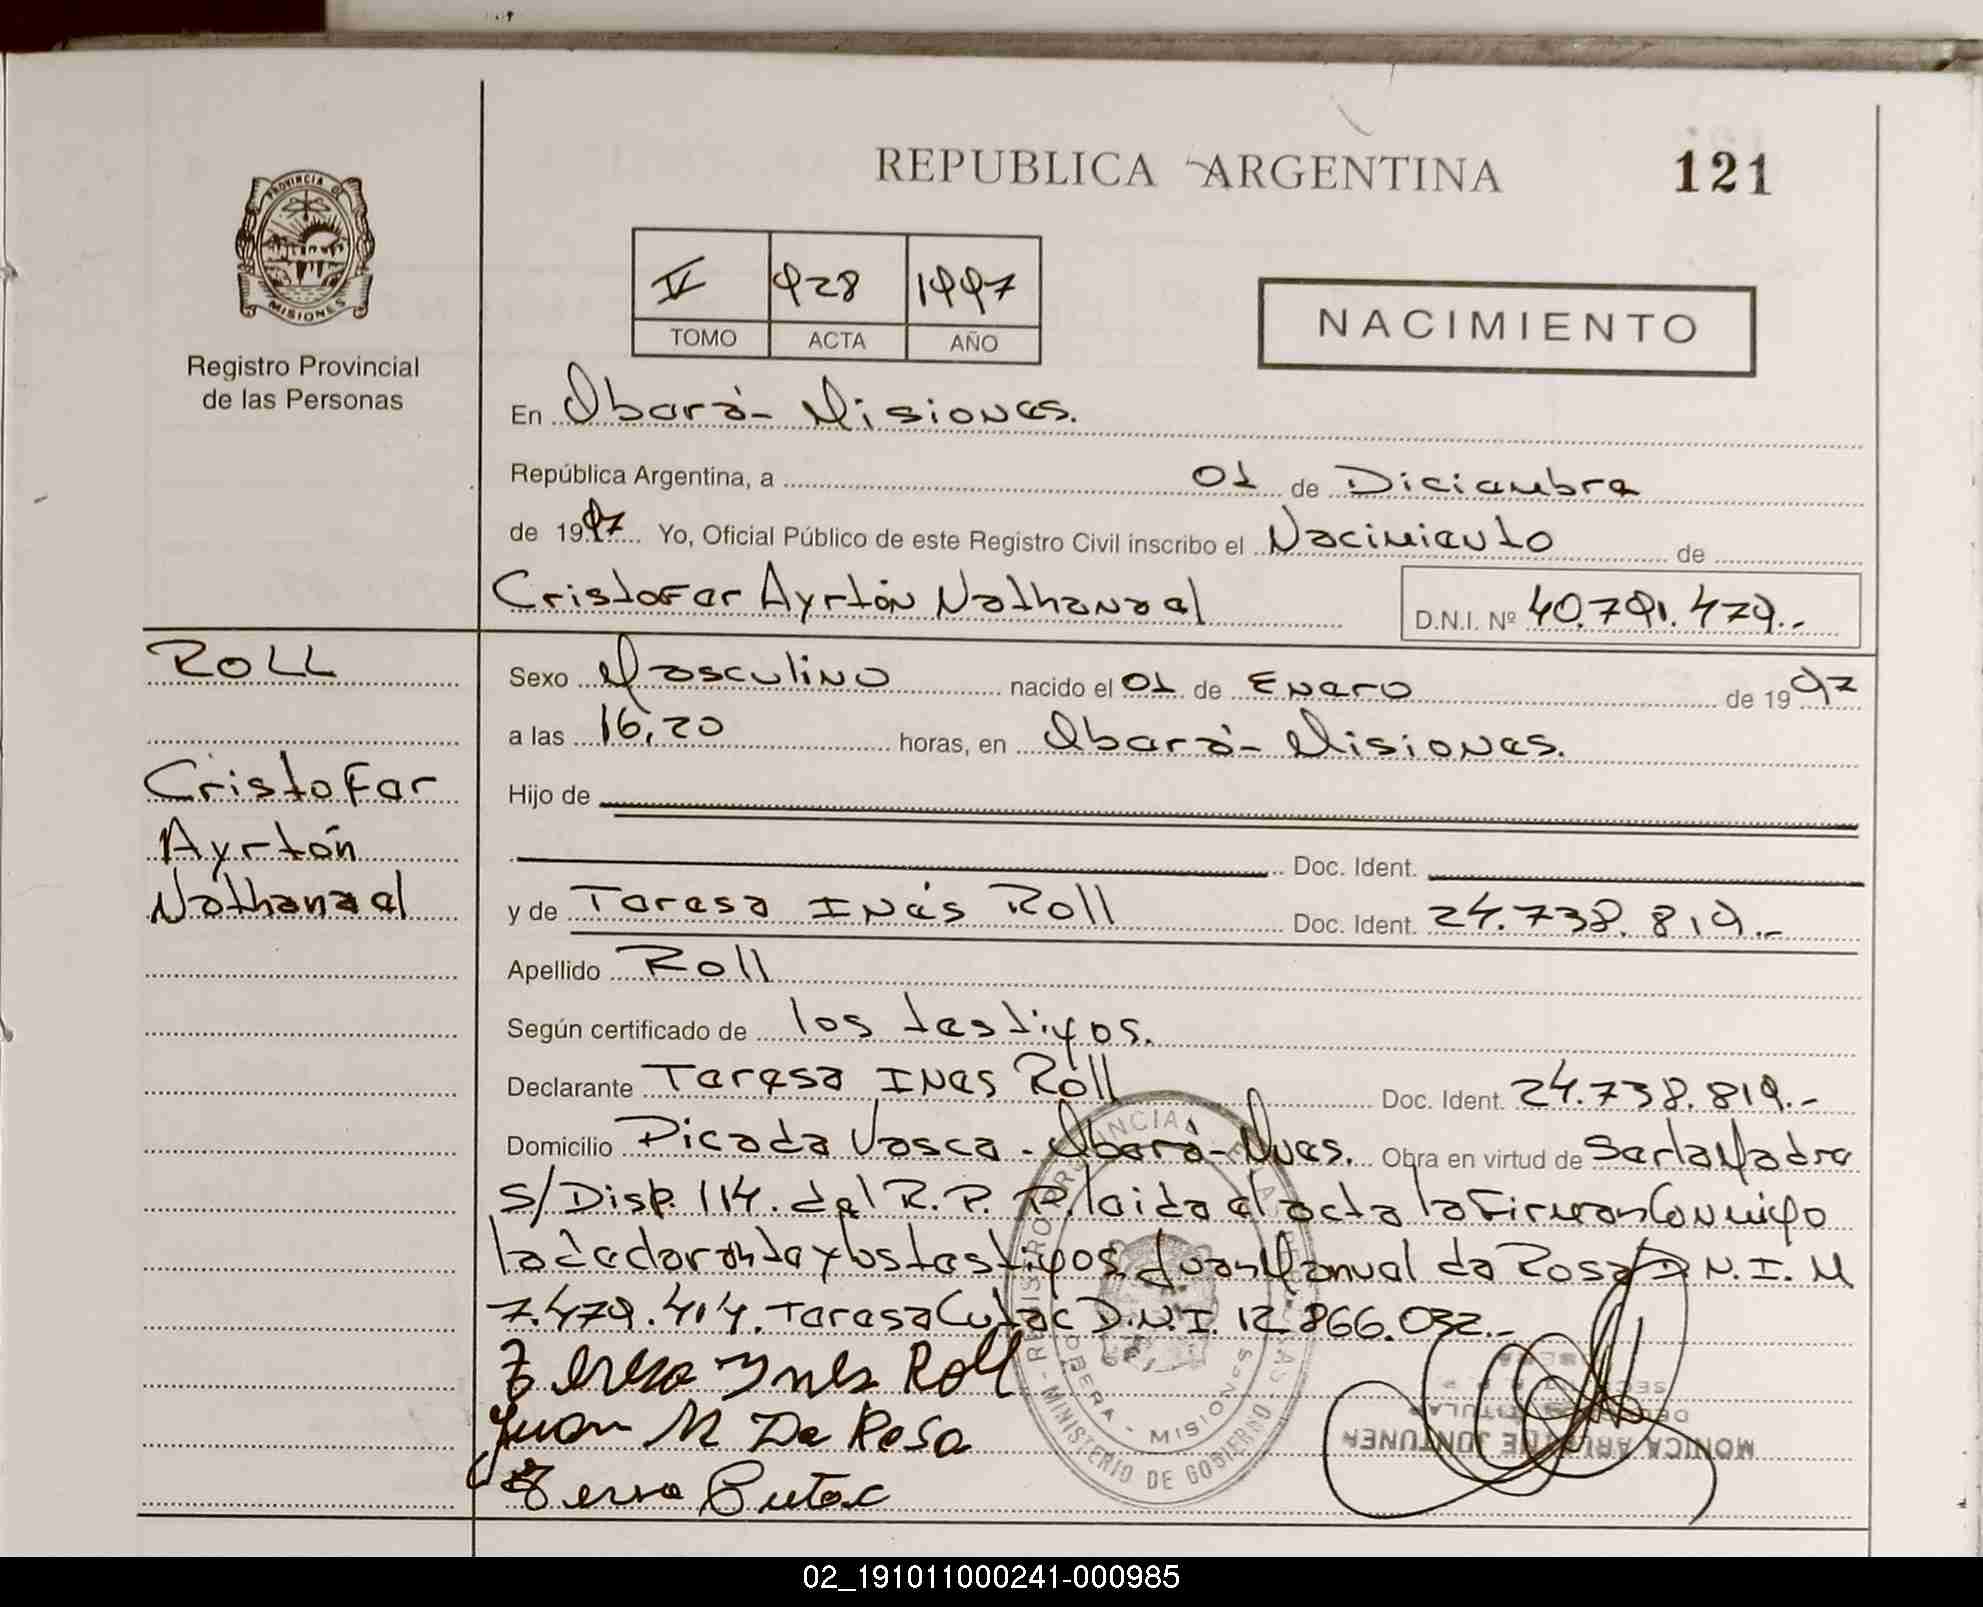 REPUBLICA ARGENTINA
121
PROVINCIA DE
MISIONES
Registro Provincial
de las Personas
IV 928 1997
TOMO ACTA AÑO
NACIMIENTO
En Oberá - Misiones.
República Argentina, a 01 de Diciembre
de 1997 Yo, Oficial Público de este Registro Civil inscribo el Nacimiento de
Cristofer Ayrtón Nathanael D.N.I. Nº 40.791.479.-
ROLL
Cristofer
Ayrtón
Nathanael
Sexo Masculino nacido el 01 de Enero de 1997
a las 16,20 horas, en Oberá - Misiones.
Hijo de
Doc. Ident.
y de Teresa Inés Roll Doc. Ident. 24.738.819.-
Apellido Roll
Según certificado de los testigos.
Declarante Teresa Ines Roll Doc. Ident. 24.738.819.-
Domicilio Picada Vasca - Oberá - Mnes. Obra en virtud de ser la Madre
S/Disp. 114. del R. P. P. leida el acta la firman Conmigo
la declarante y los testigos. Juan Manuel da Rosa D.N.I. M
7.479.414. Teresa Cutac D.N.I. 12.866.032.-
Teresa Ynes Roll
Juan M Da Rosa
Teresa Cutac
REGISTRO PROVINCIAL DE LAS PERSONAS
MINISTERIO DE GOBIERNO
OBERA - MISIONES
02_191011000241-000985